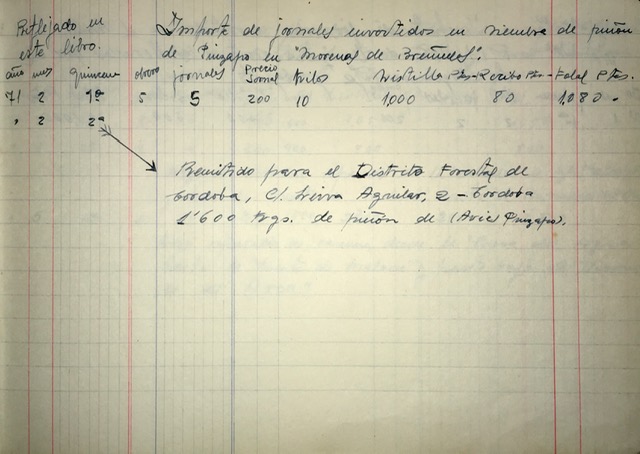 Reflejado en
este libro.
Importe de jornales invertidos en siembra de piñón
de Pinzapo en "Morenas de Breñudes".
año mes quincena obreros jornales Precio Jornal Kilos Semilla Pts.- Recibo Pts.- Total Ptas.
71 2 1ª 5 5 200 10 1,000 80 1,080.
" 2 2ª
Remitido para el Distrito Forestal de
Cordoba, C/. Aguilar, 2 - Cordoba
1'600 Kgs. de piñón de (Avie Pinzapo).